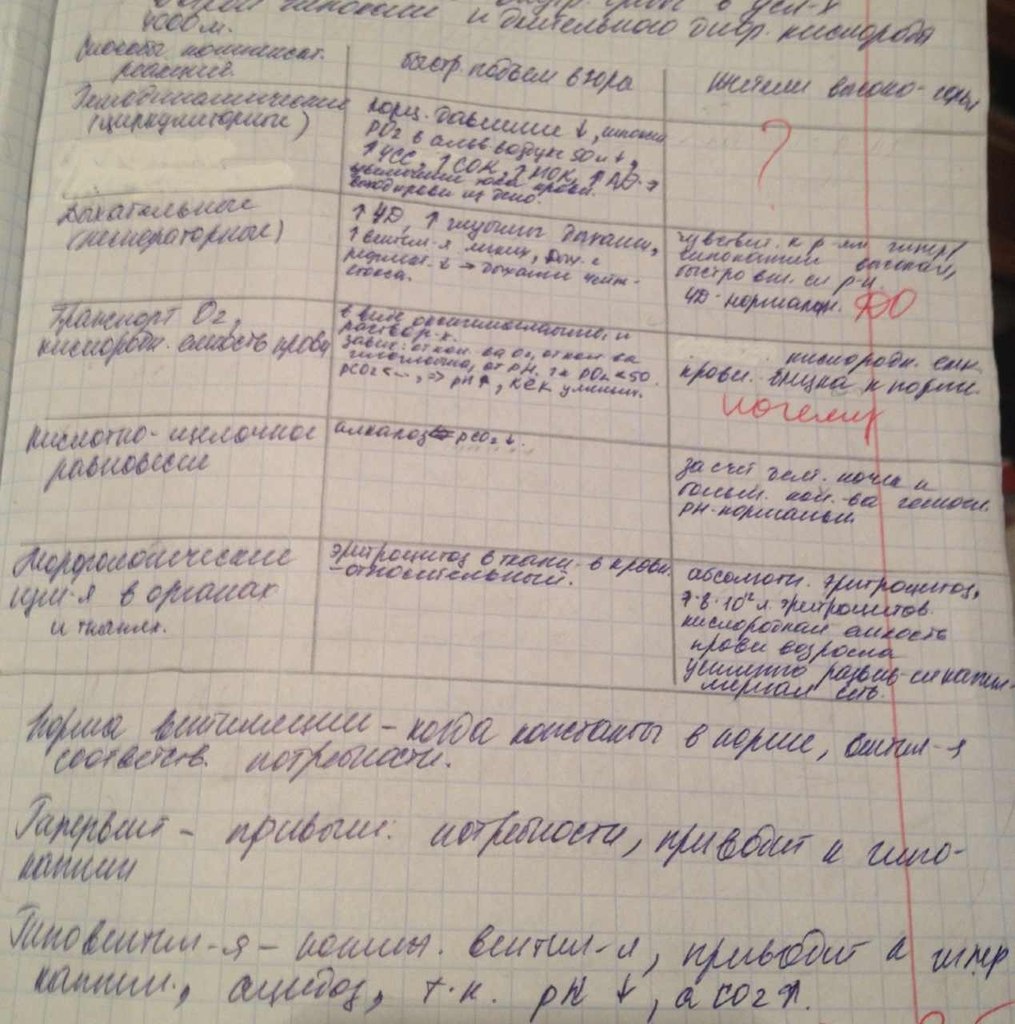 4000 м.
и длительного дефр. кислорода
Способы компенсат.
реакций.
быстр. подъём в гора
жители высоко-горья
Гемодинамические
(циркуляторные)
давление ↓,
pO2 в альв. воздухе 50 и ↓,
↑ЧСС, ↑СОК, ↑МОК, ↑АД →
выход крови из депо.
?
Дыхательные
(респираторные)
↑ЧД, ↑ глубины дыхания,
↑ вентил-я легких,
чувствит. к р-ям гипер/
гипокапнии высокая,
быстро
ЧД-нормальн. ДО
Транспорт O2,
кислородн. емкость крови
в виде оксигемоглобина, и
раствор-х.
завис. от кол-ва O2, от кол-ва
гемоглобина, от pH. pO2<50
pCO2 <..., => pH↑, КЕК уменьш.
кислородн. емк.
крови. близка к норме.
почему
Кислотно-щелочное
равновесие
алкалоз pCO2↓.
за счет деят. почек и
больш. кол-ва гемогл.
pH-нормальн.
Морфологические
изм-я в органах
и тканях.
эритроцитоз в ткани. в крови
-относительный.
абсолютн. эритроцитоз,
7-8·10¹² л эритроцитов
кислородная емкость
крови возросла
усиленно развив-ся капил-
лярная сеть.
Норма вентиляции – когда константы в норме, вентил-я
соответств. потребности.
Гипервент – превыш. потребности, приводит к гипо-
капнии
Гиповентил-я – пониж. вентил-я, приводит к гипер
капнии, ацидоз, т.к. pH ↓, а CO2↑.